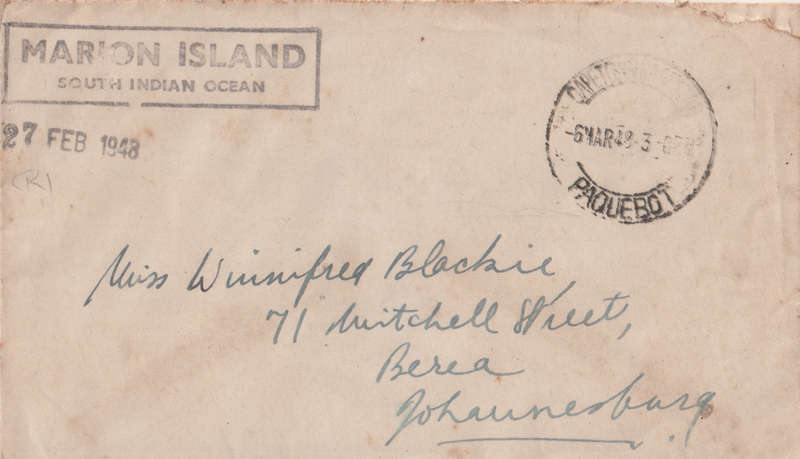 MARION ISLAND
SOUTH INDIAN OCEAN
27 FEB 1948
(R)
-6MAR48-3
PAQUEBOT
Miss Winnifred Blackie,
71 Mitchell Street,
Berea
Johannesburg